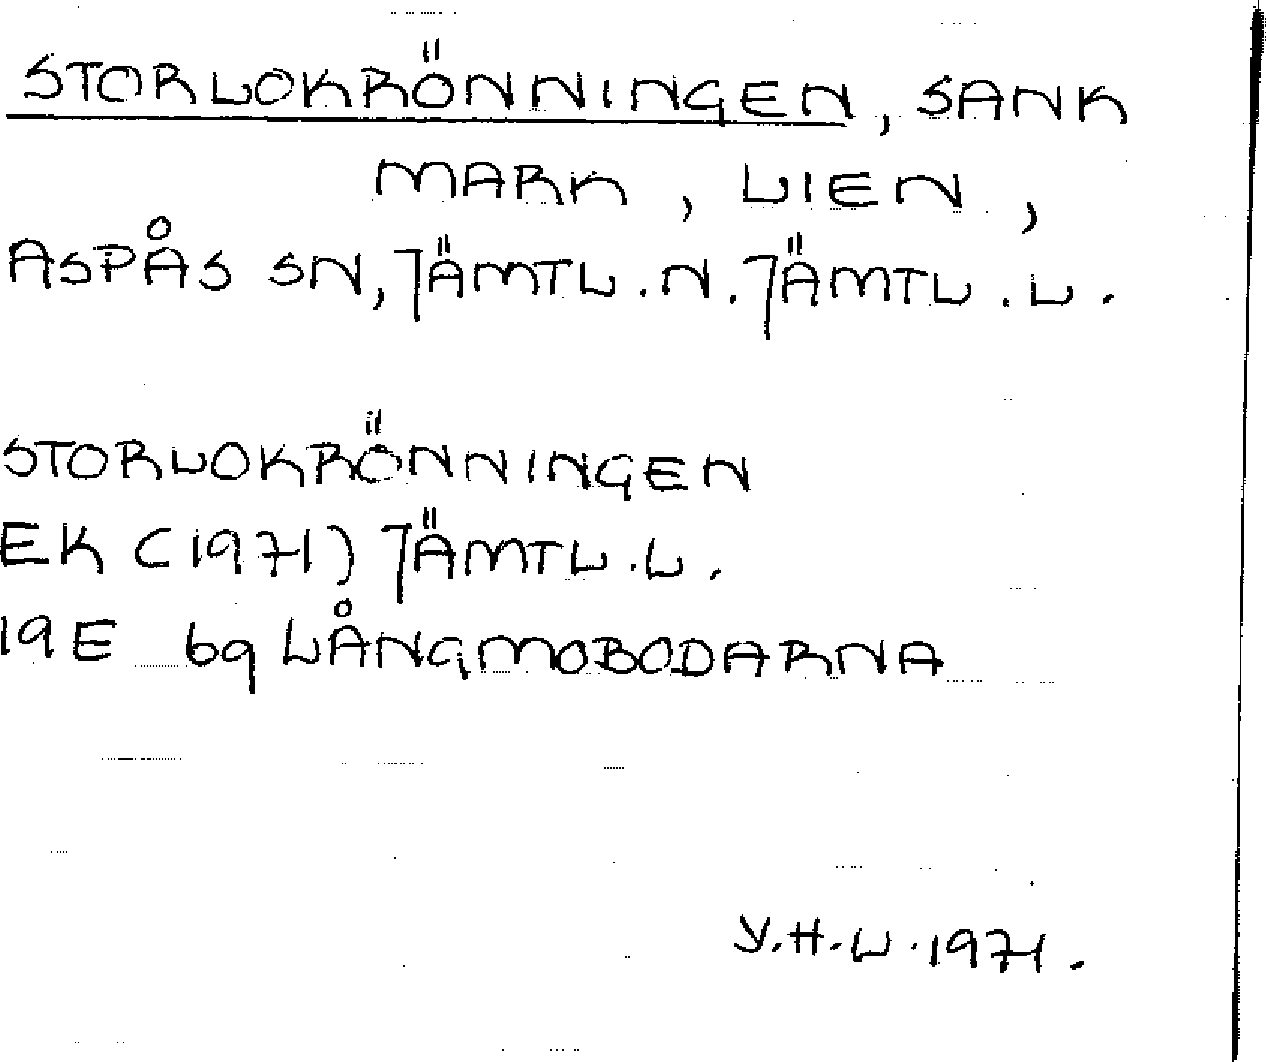 STORLOKRÖNNINGEN, SANK
MARK, LIEN,
ASPÅS SN, JÄMTL.N. JÄMTL.L.
STORLOKRÖNNINGEN
EK (1971) JÄMTL.L.
19E 6g LÅNGMOBODARNA
Y.H.L.1971.